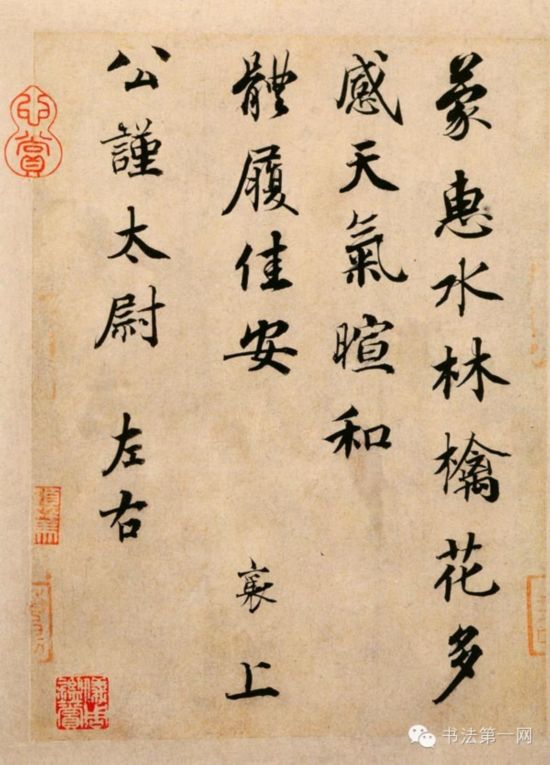 蒙惠水林檎花多
感天氣暄和
體履佳安 襄 上
公謹太尉 左右
书法第一网